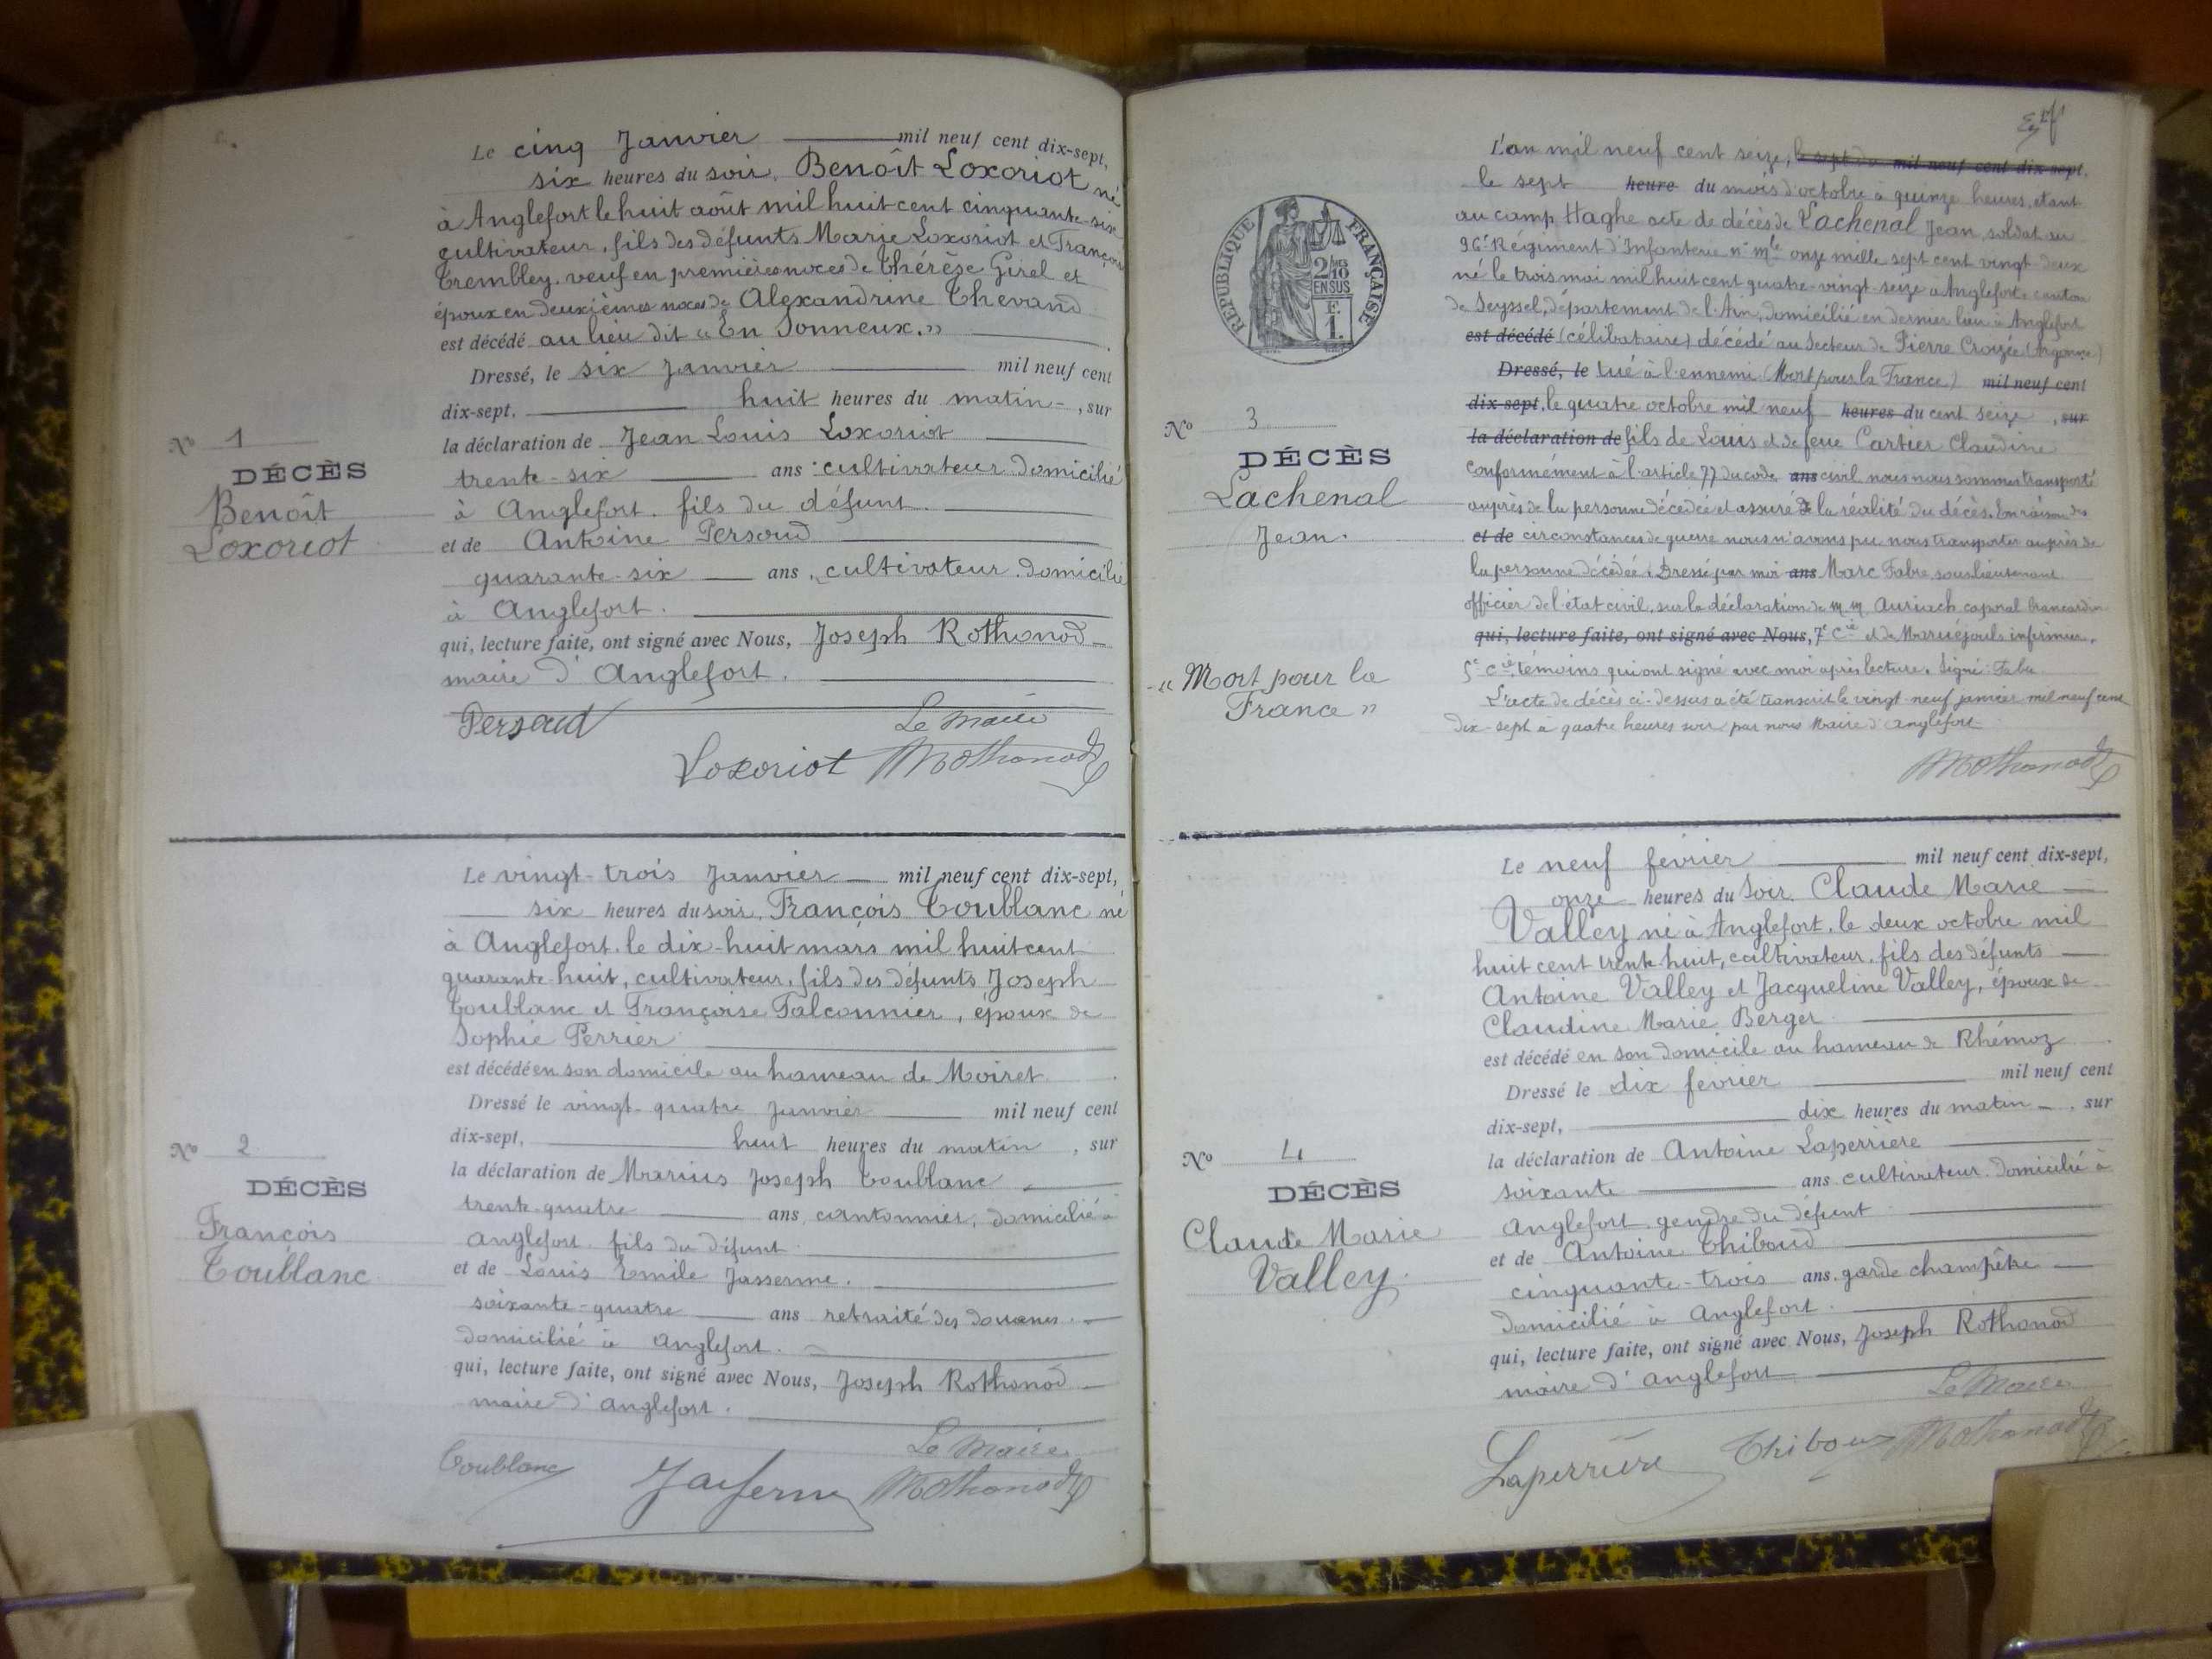 Le cinq Janvier mil neuf cent dix-sept,
six heures du soir, Benoît Loxoriot né
à Anglefort le huit août mil huit cent cinquante-six
cultivateur, fils des défunts Marie Loxoriot et François
Trembley, veuf en premières noces de Thérèse Girel et
époux en deuxièmes noces de Alexandrine Thevand
est décédé au lieu dit « En Sonneux. »
Dressé, le six Janvier mil neuf cent
dix-sept, huit heures du matin, sur
la déclaration de Jean Louis Loxoriot
trente-six ans, cultivateur domicilié
à Anglefort, fils du défunt
et de Antoine Persoud
quarante-six ans, cultivateur, domicilié
à Anglefort.
qui, lecture faite, ont signé avec Nous, Joseph Rothonod
maire d'Anglefort.
Nº 1
DÉCÈS
Benoît
Loxoriot
Persoud Le Maire
Loxoriot JRothonod
Le vingt-trois Janvier mil neuf cent dix-sept,
six heures du soir, François Toublanc né
à Anglefort, le dix-huit mars mil huit cent
quarante-huit, cultivateur, fils des défunts Joseph
Toublanc et Françoise Falconnier, époux de
Sophie Perrier
est décédé en son domicile au hameau de Moiret.
Dressé le vingt-quatre Janvier mil neuf cent
dix-sept, huit heures du matin, sur
la déclaration de Marius Joseph Toublanc,
trente-quatre ans, cantonnier, domicilié à
Anglefort, fils du défunt
et de Louis Emile Jasserme.
soixante-quatre ans retraité des douanes.
domicilié à Anglefort.
qui, lecture faite, ont signé avec Nous, Joseph Rothonod
maire d'Anglefort.
Nº 2
DÉCÈS
François
Toublanc
Le Maire
Toublanc Jasserme JRothonod
RÉPUBLIQUE FRANÇAISE
2/10
EN SUS
F.
1.
L'an mil neuf cent seize, le sept du mil neuf cent dix-sept,
le sept heure du mois d'octobre à quinze heures, étant
au camp Haghe acte de décès de Lachenal Jean, soldat au
96e Régiment d'Infanterie nº mle onze mille sept cent vingt-deux
né le trois mai mil huit cent quatre-vingt-seize à Anglefort, canton
de Seyssel, département de l'Ain, domicilié en dernier lieu à Anglefort
est décédé (célibataire) décédé au Secteur de Pierre Croisée (Argonne)
Dressé, le tué à l'ennemi (Mort pour la France) mil neuf cent
dix sept, le quatre octobre mil neuf heures du cent seize, sur
la déclaration de fils de Louis et de feue Cartier Claudine
Conformément à l'article 77 du code ans civil nous nous sommes transporté
auprès de la personne décédée et assuré de la réalité du décès. En raison des
et de circonstances de guerre nous n'avons pu nous transporter auprès de
la personne décédée. Dressé par moi ans Marc Fabre, sous lieutenant
officier de l'état civil, sur la déclaration de M.M. Auriach caporal brancardier
qui, lecture faite, ont signé avec Nous, 7e Cie et de Maruéjouls infirmier,
5e Cie témoins qui ont signé avec moi après lecture. Signé: Fabre
L'acte de décès ci-dessus a été transcrit le vingt neuf janvier mil neuf cent
dix-sept à quatre heures soir par nous Maire d'Anglefort
Nº 3
DÉCÈS
Lachenal
Jean.
« Mort pour la
France »
JRothonod
Le neuf février mil neuf cent dix-sept,
onze heures du soir Claude Marie
Valley né à Anglefort, le deux octobre mil
huit cent trente-huit, cultivateur, fils des défunts
Antoine Valley et Jacqueline Valley, époux de
Claudine Marie Berger
est décédé en son domicile au hameau de Rhémoz.
Dressé le dix février mil neuf cent
dix-sept, dix heures du matin, sur
la déclaration de Antoine Laperrière
soixante ans cultivateur, domicilié à
Anglefort, gendre du défunt
et de Antoine Thiboud
cinquante-trois ans, garde champêtre
domicilié à Anglefort.
qui, lecture faite, ont signé avec Nous, Joseph Rothonod
maire d'Anglefort
Nº 4
DÉCÈS
Claude Marie
Valley.
Le Maire
Laperrière Thiboud JRothonod